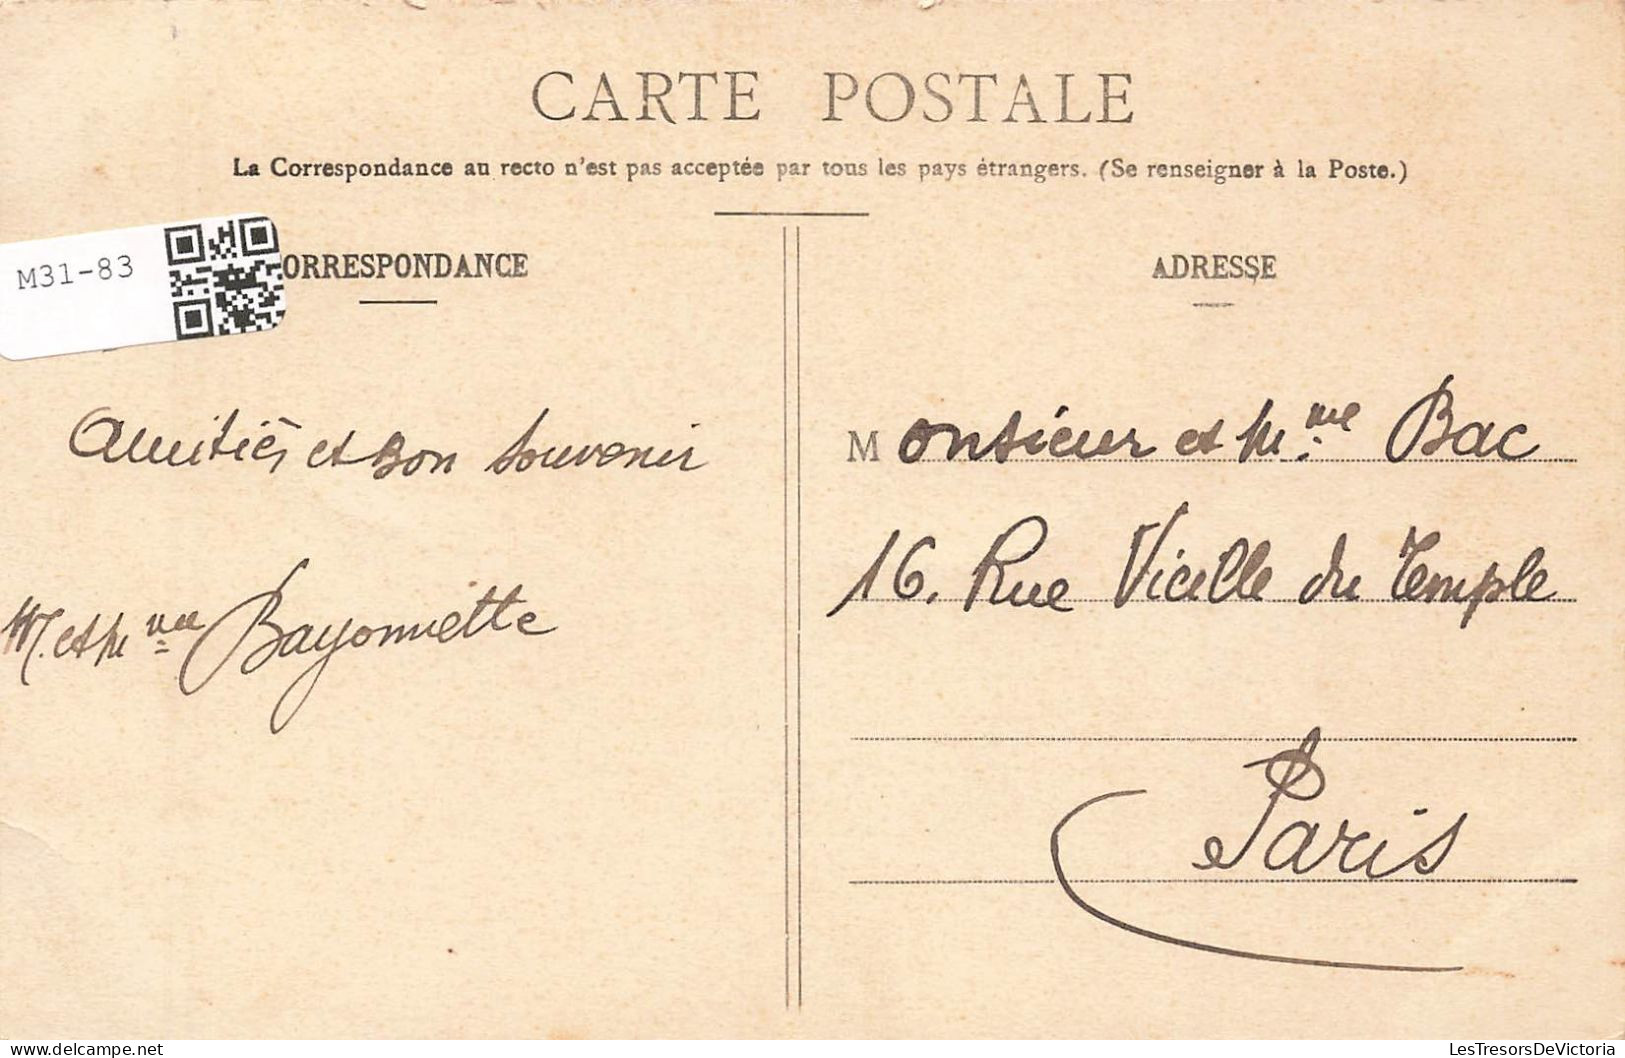 CARTE POSTALE
La Correspondance au recto n'est pas acceptée par tous les pays étrangers. (Se renseigner à la Poste.)
M31-83
ORRESPONDANCE
Amitiés et bon souvenir
M. et Mme Bayonnette
ADRESSE
Monsieur et Mme Bac
16, Rue Vieille du Temple
Paris
LesTresorsDeVictoria
delcampe.net